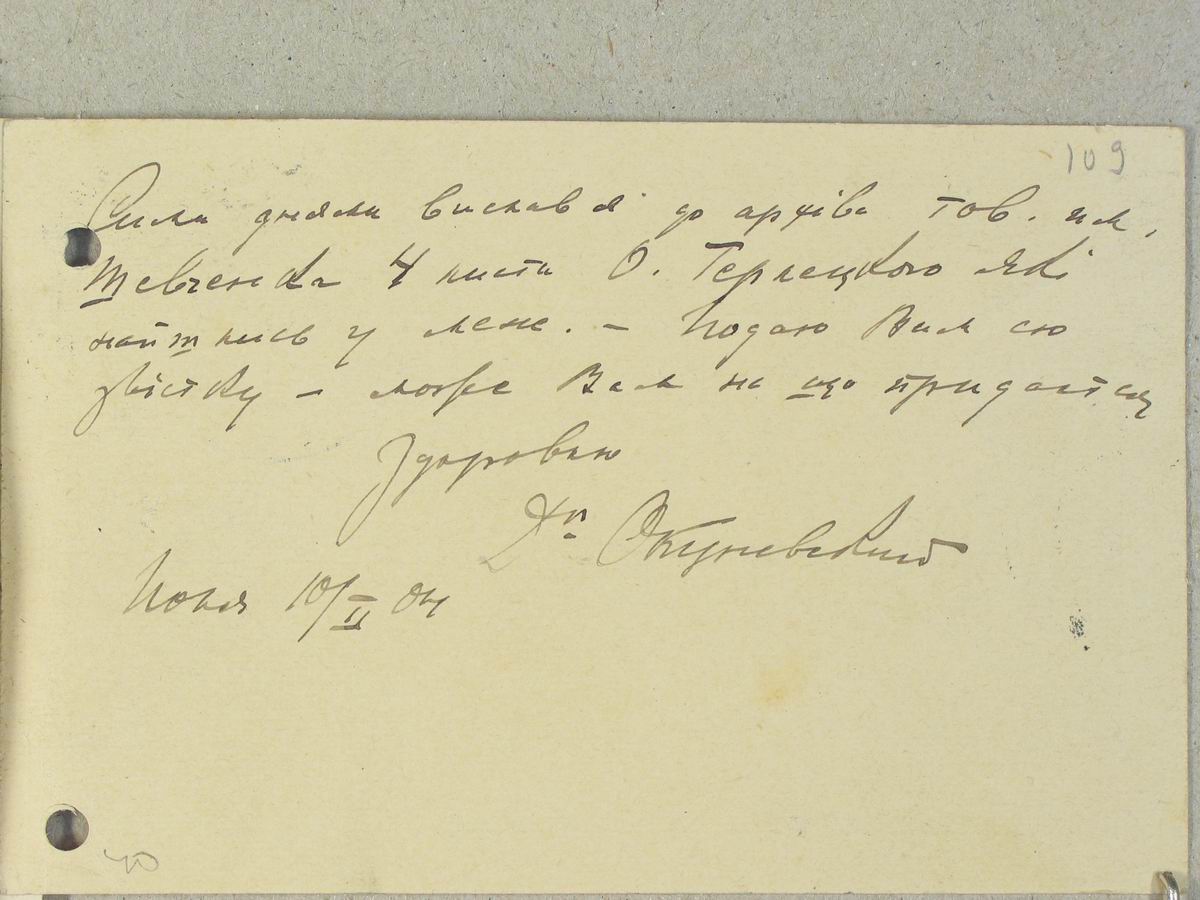 109
Сими днями вислав я до архіва тов. им.
Шевченка 4 листи О. Терлецкого які
найшлись у мене. – Подаю Вам сю
звістку – може Вам на що придасть ся
Здоровлю
Др Окуневский
Пола 10/II 04
40